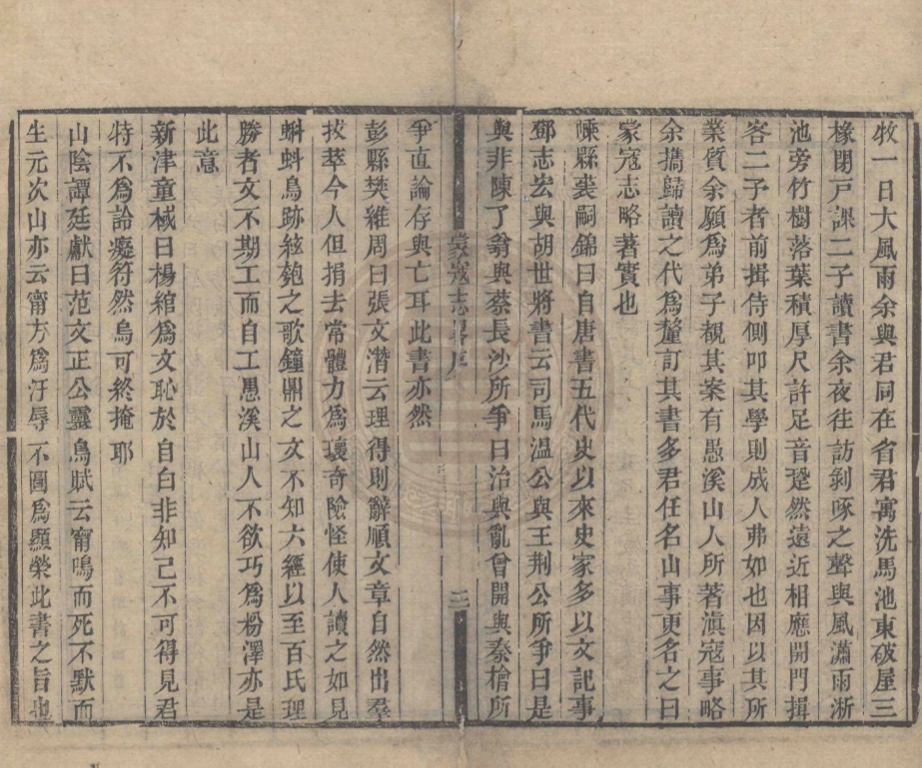 牧一日大風雨余與君同在省君寓洗馬池東破屋三
椽閉戸課二子讀書余夜往訪剝啄之聲與風瀟雨淅
池旁竹樹落葉積厚尺許足音跫然遠近相應開門揖
客二子者前揖侍側叩其學則成人弗如也因以其所
業質余願爲弟子覩其案有愚溪山人所著滇寇事略
余攜歸讀之代爲釐訂其書多君任名山事更名之曰
蒙寇志略著實也
嵊縣裘嗣錦曰自唐書五代史以來史家多以文記事
鄧志宏與胡世將書云司馬溫公與王荆公所爭曰是
與非陳了翁與蔡長沙所爭曰治與亂曾開與秦檜所
蒙寇志畧序
三
爭直論存與亡耳此書亦然
彭縣樊維周曰張文潛云理得則辭順文章自然出羣
拔萃今人但捐去常體力爲瓌奇險怪使人讀之如見
蝌蚪鳥跡絃匏之歌鐘鼎之文不知六經以至百氏理
勝者文不期工而自工愚溪山人不欲巧爲粉澤亦是
此意
新津童棫曰楊綰爲文恥於自白非知己不可得見君
特不爲詅癡符然烏可終掩耶
山陰譚廷獻曰范文正公靈烏賦云甯鳴而死不默而
生元次山亦云甯方爲汙辱不圓爲顯榮此書之旨也